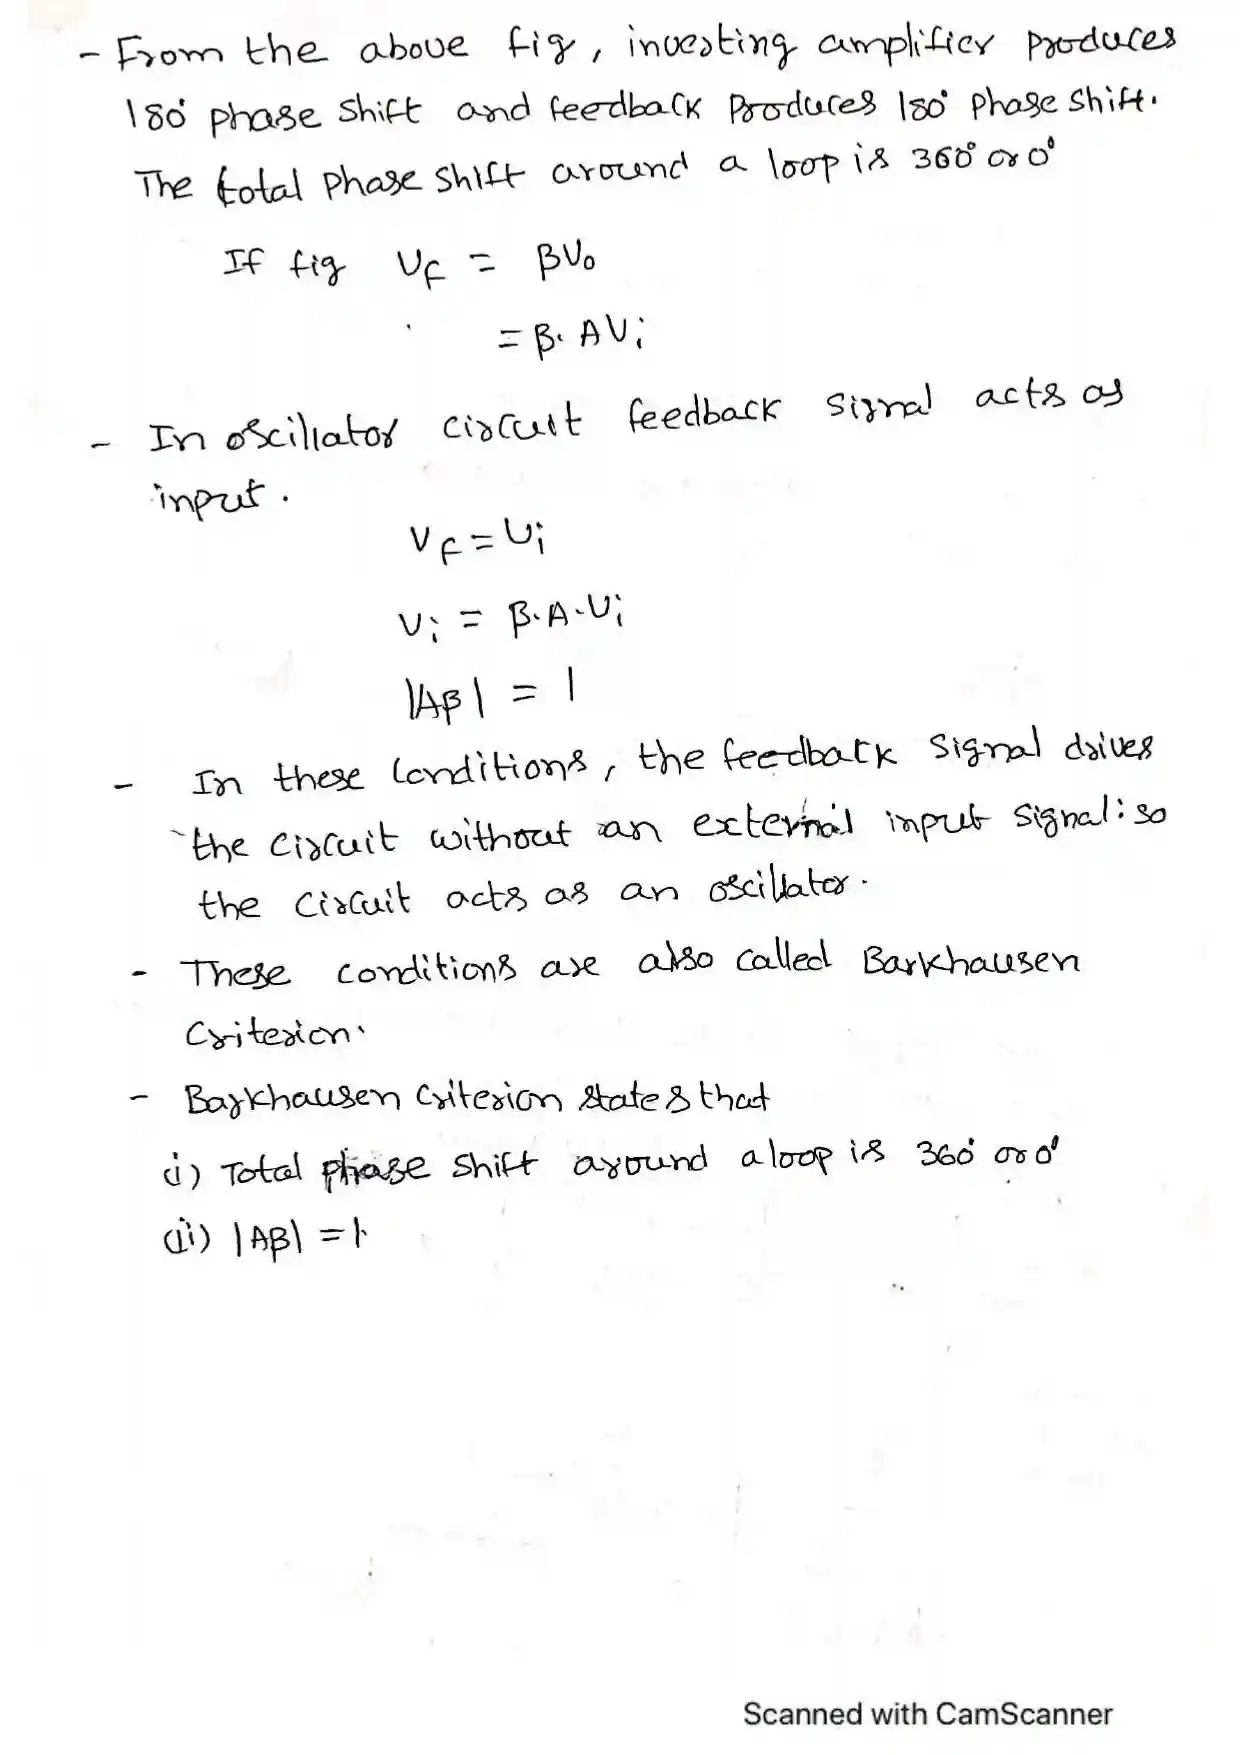 - From the above fig, inverting amplifier produces
180° phase shift and feedback produces 180° phase shift.
The total phase shift around a loop is 360° or 0°
If fig Vf = βVo
= β. AVi
- In oscillator circuit feedback signal acts as
input.
Vf = Vi
Vi = β.A.Vi
|Aβ| = 1
- In these conditions, the feedback signal drives
the circuit without an external input signal: so
the circuit acts as an oscillator.
- These conditions are also called Barkhausen
criterion.
- Barkhausen criterion states that
i) Total phase shift around a loop is 360° or 0°
(ii) |Aβ| = 1.
Scanned with CamScanner